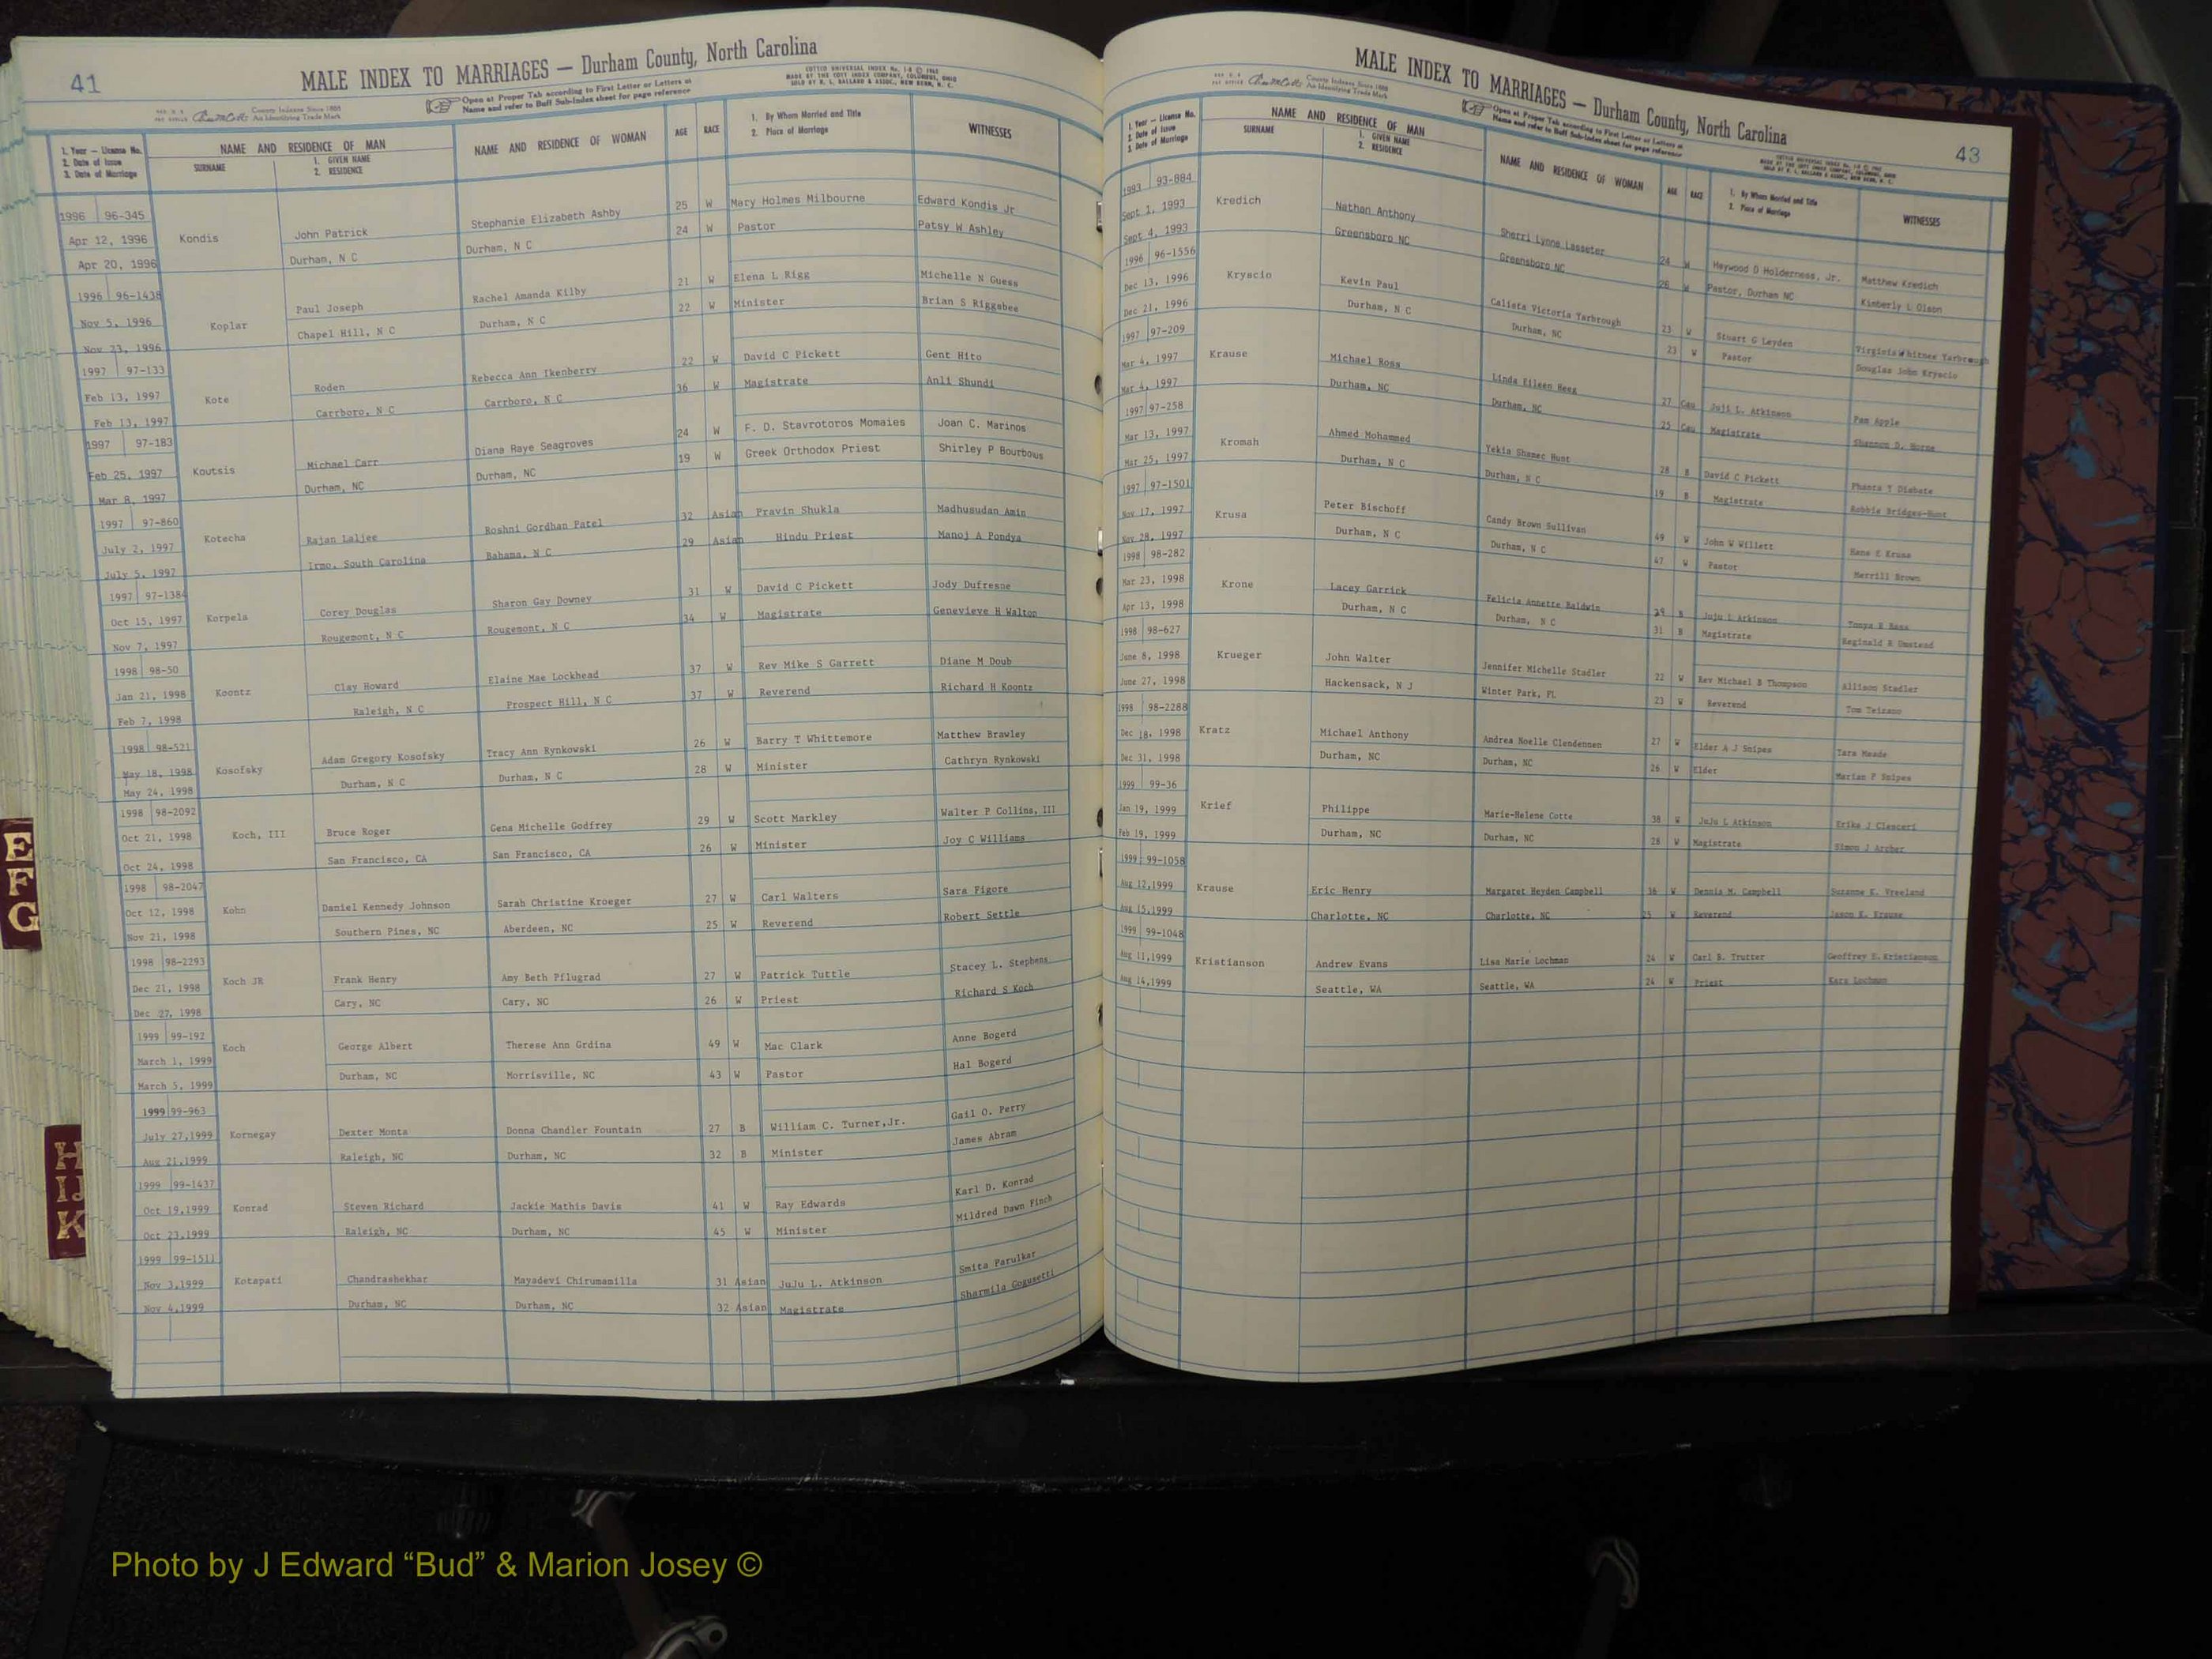 41
MALE INDEX TO MARRIAGES — Durham County, North Carolina
Open at Proper Tab according to First Letter or Letters of
Name and refer to Buff Sub-Index sheet for page reference
COTTCO UNIVERSAL INDEX No. 1-8 © 1962
MADE BY THE COTT INDEX COMPANY, COLUMBUS, OHIO
SOLD BY R. L. BALLARD & ASSOC., NEW BERN, N. C.
County Indexes Since 1888
An Identifying Trade Mark
1. Year — License No.
2. Date of Issue
3. Date of Marriage
NAME AND RESIDENCE OF MAN
SURNAME
1. GIVEN NAME
2. RESIDENCE
NAME AND RESIDENCE OF WOMAN
AGE
RACE
1. By Whom Married and Title
2. Place of Marriage
WITNESSES
1996 96-345 Stephanie Elizabeth Ashby 25 W Mary Holmes Milbourne Edward Kondis Jr
Apr 12, 1996 Kondis John Patrick Durham, N C 24 W Pastor Patsy W Ashley
Apr 20, 1996 Durham, N C
1996 96-1438 Paul Joseph Rachel Amanda Kilby 21 W Elena L Rigg Michelle N Guess
Nov 5, 1996 Koplar Chapel Hill, N C Durham, N C 22 W Minister Brian S Riggsbee
Nov 23, 1996
1997 97-133 Roden Rebecca Ann Ikenberry 22 W David C Pickett Gent Hito
Feb 13, 1997 Kote Carrboro, N C Carrboro, N C 36 W Magistrate Anli Shundi
Feb 13, 1997
1997 97-183 Michael Carr Diana Raye Seagroves 24 W F. D. Stavrotoros Momaies Joan C. Marinos
Feb 25, 1997 Koutsis Durham, NC Durham, NC 19 W Greek Orthodox Priest Shirley P Bourbous
Mar 8, 1997
1997 97-860 Rajan Laljee Roshni Gordhan Patel 32 Asian Pravin Shukla Madhusudan Amin
July 2, 1997 Kotecha Irmo, South Carolina Bahama, N C 29 Asian Hindu Priest Manoj A Pondya
July 5, 1997
1997 97-1384 Corey Douglas Sharon Gay Downey 31 W David C Pickett Jody Dufresne
Oct 15, 1997 Korpela Rougemont, N C Rougemont, N C 34 W Magistrate Genevieve H Walton
Nov 7, 1997
1998 98-50 Clay Howard Elaine Mae Lockhead 37 W Rev Mike S Garrett Diane M Doub
Jan 21, 1998 Koontz Raleigh, N C Prospect Hill, N C 37 W Reverend Richard H Koontz
Feb 7, 1998
1998 98-521 Adam Gregory Kosofsky Tracy Ann Rynkowski 26 W Barry T Whittemore Matthew Brawley
May 18, 1998 Kosofsky Durham, N C Durham, N C 28 W Minister Cathryn Rynkowski
May 24, 1998
1998 98-2092 Bruce Roger Gena Michelle Godfrey 29 W Scott Markley Walter P Collins, III
Oct 21, 1998 Koch, III San Francisco, CA San Francisco, CA 26 W Minister Joy C Williams
Oct 24, 1998
1998 98-2047 Daniel Kennedy Johnson Sarah Christine Kroeger 27 W Carl Walters Sara Figore
Oct 12, 1998 Kohn Southern Pines, NC Aberdeen, NC 25 W Reverend Robert Settle
Nov 21, 1998
1998 98-2293 Frank Henry Amy Beth Pflugrad 27 W Patrick Tuttle Stacey L. Stephens
Dec 21, 1998 Koch JR Cary, NC Cary, NC 26 W Priest Richard S Koch
Dec 27, 1998
1999 99-192 George Albert Therese Ann Grdina 49 W Mac Clark Anne Bogerd
March 1, 1999 Koch Durham, NC Morrisville, NC 43 W Pastor Hal Bogerd
March 5, 1999
1999 99-963 Dexter Monta Donna Chandler Fountain 27 B William C. Turner,Jr. Gail O. Perry
July 27,1999 Kornegay Raleigh, NC Durham, NC 32 B Minister James Abram
Aug 21,1999
1999 99-1437 Steven Richard Jackie Mathis Davis 41 W Ray Edwards Karl D. Konrad
Oct 19,1999 Konrad Raleigh, NC Durham, NC 45 W Minister Mildred Dawn Finch
Oct 23,1999
1999 99-1511 Chandrashekhar Mayadevi Chirumamilla 31 Asian JuJu L. Atkinson Smita Parulkar
Nov 3,1999 Kotapati Durham, NC Durham, NC 32 Asian Magistrate Sharmila Gogusetti
Nov 4,1999
E
F
G
H
IJ
K
MALE INDEX TO MARRIAGES — Durham County, North Carolina
43
County Indexes Since 1888
An Identifying Trade Mark
Open at Proper Tab according to First Letter or Letters of
Name and refer to Buff Sub-Index sheet for page reference
1. Year — License No.
2. Date of Issue
3. Date of Marriage
NAME AND RESIDENCE OF MAN
SURNAME
1. GIVEN NAME
2. RESIDENCE
NAME AND RESIDENCE OF WOMAN
AGE
RACE
1. By Whom Married and Title
2. Place of Marriage
WITNESSES
1993 93-884 Nathan Anthony Sherri Lynne Lasseter 24 W Heywood D Holderness, Jr. Matthew Kredich
Sept 1, 1993 Kredich Greensboro NC Greensboro NC 26 W Pastor, Durham NC Kimberly L Olson
Sept 4, 1993
1996 96-1556 Kevin Paul Calista Victoria Yarbrough 23 W Stuart G Leyden Virginia Whitney Yarbrough
Dec 13, 1996 Kryscio Durham, N C Durham, NC 23 W Pastor Douglas John Kryscio
Dec 21, 1996
1997 97-209 Michael Ross Linda Eileen Heeg 27 Cau Juji L. Atkinson Pam Apple
Mar 4, 1997 Krause Durham, NC Durham, NC 25 Cau Magistrate Shannon D. Horne
Mar 4, 1997
1997 97-258 Ahmed Mohammed Yekia Shamec Hunt 28 B David C Pickett Phanta T Diabate
Mar 13, 1997 Kromah Durham, N C Durham, N C 19 B Magistrate Robbie Bridges-Hunt
Mar 25, 1997
1997 97-1501 Peter Bischoff Candy Brown Sullivan 49 W John W Willett Hans E Krusa
Nov 17, 1997 Krusa Durham, N C Durham, N C 47 W Pastor Merrill Brown
Nov 28, 1997
1998 98-282 Lacey Garrick Felicia Annette Baldwin 29 B Juju L Atkinson Tonya R Bass
Mar 23, 1998 Krone Durham, N C Durham, N C 31 B Magistrate Reginald R Umstead
Apr 13, 1998
1998 98-627 John Walter Jennifer Michelle Stadler 22 W Rev Michael B Thompson Allison Stadler
June 8, 1998 Krueger Hackensack, N J Winter Park, FL 23 W Reverend Tom Teizano
June 27, 1998
1998 98-2288 Michael Anthony Andrea Noelle Clendennen 27 W Elder A J Snipes Tara Meade
Dec 18, 1998 Kratz Durham, NC Durham, NC 26 W Elder Marian P Snipes
Dec 31, 1998
1999 99-36 Philippe Marie-Helene Cotte 38 W JuJu L Atkinson Erika J Clesceri
Jan 19, 1999 Krief Durham, NC Durham, NC 28 W Magistrate Simon J Archer
Feb 19, 1999
1999 99-1058 Eric Henry Margaret Heyden Campbell 36 W Dennis M. Campbell Suzanne K. Vreeland
Aug 12,1999 Krause Charlotte, NC Charlotte, NC 25 W Reverend Jason K. Krause
Aug 15,1999
1999 99-1048 Andrew Evans Lisa Marie Lochman 24 W Carl B. Trutter Geoffrey S. Kristianson
Aug 11,1999 Kristianson Seattle, WA Seattle, WA 24 W Priest Kara Lochman
Aug 14,1999
Photo by J Edward “Bud” & Marion Josey ©